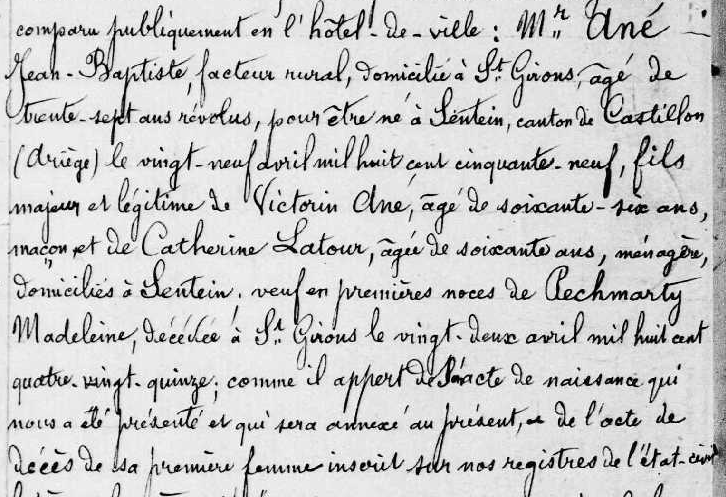 comparu publiquement en l'hôtel-de-ville : Mr Ané
Jean-Baptiste, facteur rural, domicilié à St Girons, âgé de
trente-sept ans révolus, pour être né à Sentein, canton de Castillon
(Ariège) le vingt-neuf avril mil huit cent cinquante-neuf, fils
majeur et légitime de Victorin Ané, âgé de soixante-six ans,
maçon, et de Catherine Latour, âgée de soixante ans, ménagère,
domiciliés à Sentein, veuf en premières noces de Pechmarty
Madeleine, décédée à St Girons le vingt-deux avril mil huit cent
quatre-vingt-quinze; comme il appert de l'acte de naissance qui
nous a été présenté et qui sera annexé au présent, et de l'acte de
décès de sa première femme inscrit sur nos registres de l'état-civil